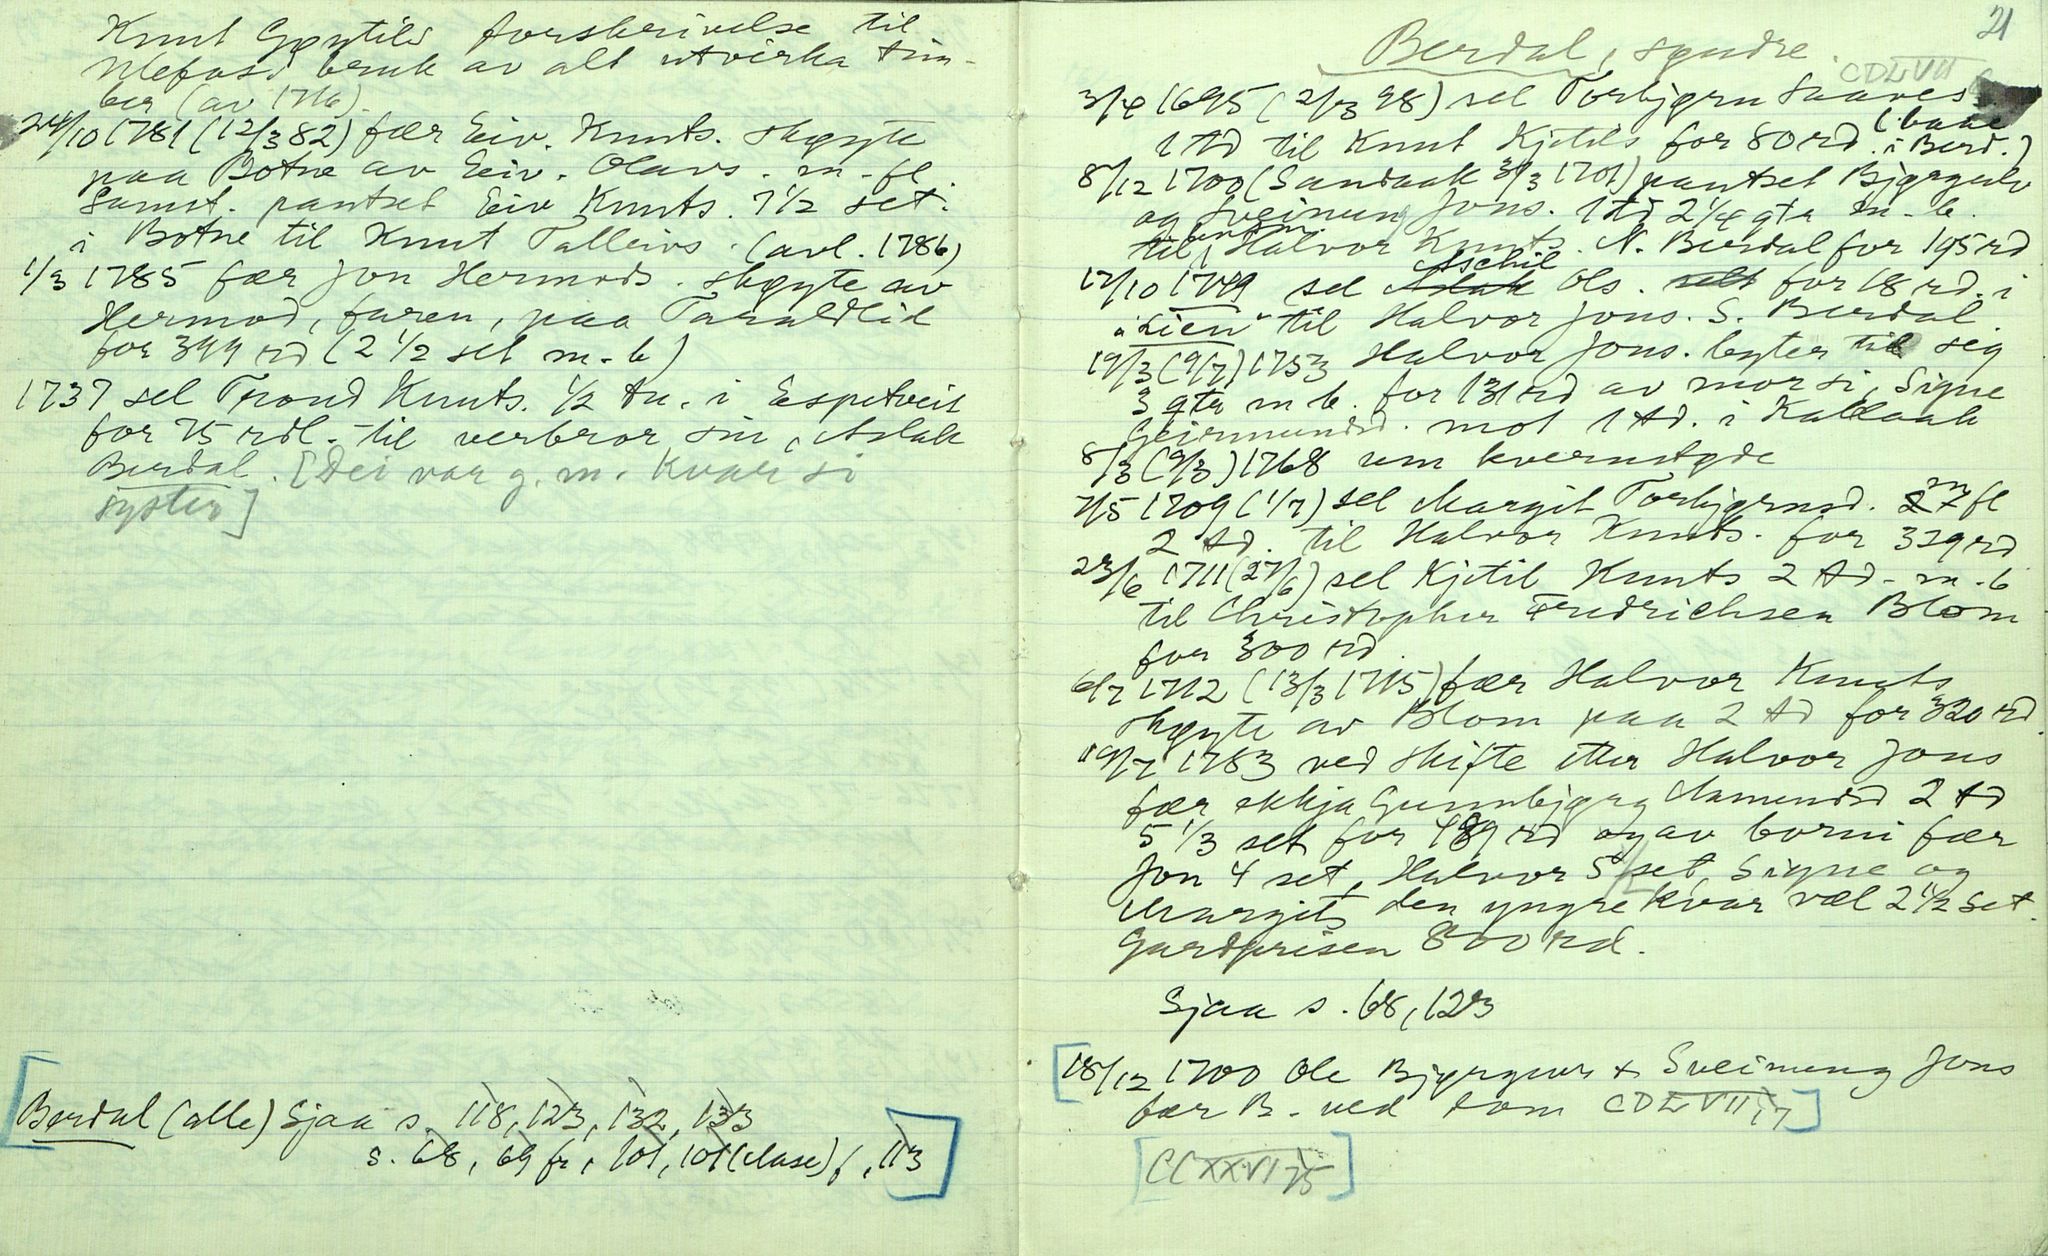 Knut Gøytils forskrivelse til
Ulefoss bruk av alt utvirka tim-
ber (av 1776).
24/10 1781 (12/3 82) fær Eiv. Knuts. skøyte
paa Botne av Eiv. Olavs. m. fl.
Samst. pantset Eiv Knuts. 7 1/2 set.
i Botne til Knut Talleivs. (avl. 1786)
1/3 1785 fær Jon Hermods. skøyte av
Hermod, faren, paa Taraldlid
for 399 rd (2 1/2 set m. b)
1737 sel Trond Knuts. 1/2 tn. i Espetveit
for 75 rdl. til verbror sin, Aslak
Berdal. [Dei var g. m. kvar si
syster]
Berdal (alle) Sjaa s. 118, 123, 132, 133
s. 68, 69 fr, 101, 101 (lause) f, 113
21
Berdal, syndre.
CDLVII
3/4 1695 (2/3 98) sel Torbjørn Saaves
1 td til Knut Kjetils for 80 rd. (bake
i Berd.)
8/12 1700 (Sandaak 3/3 1701) pantset Bjørgulv
og Sveinung Jons. 1 td 2 1/4 gta m. b.
til Halvor Knuts. N. Berdal for 195 rd
17/10 1749 sel Aschil Ols. for 18 rd. i
"Lien" til Halvor Jons. S. Berdal.
19/3 (9/7) 1753 Halvor Jons. byter til seg
3 gta m b. for 131 rd av mor si, Signe
Geirmundsd. mot 1 td. i Kallaak
8/3 (9/3) 1768 um kvernstøde
7/5 1709 (1/7) sel Margit Torbjørnsd. m fl
2 td. til Halvor Knuts. for 329 rd
23/6 1711 (27/6) sel Kjetil Knuts 2 td. m. b
til Christopher Fredrichsen Blom
for 300 rd.
6/7 1712 (13/3 1715) fær Halvor Knuts
skøyte av Blom paa 2 td for 320 rd.
19/7 1783 ved skifte etter Halvor Jons
fær ekkja Gunnbjørg Aamundsd 2 td
5 1/3 set for 489 rd og av borni fær
Jon 4 set, Halvor 5 1/2 set, Signe og
Margit den yngre kvar vel 2 1/2 set.
Gardprisen 800 rd.
Sjaa s. 68, 123
[18/12 1700 Ole Bjørguvs + Sveinung Jons
bær B. ved dom CDLVII, 7]
[CCXXVI 75]